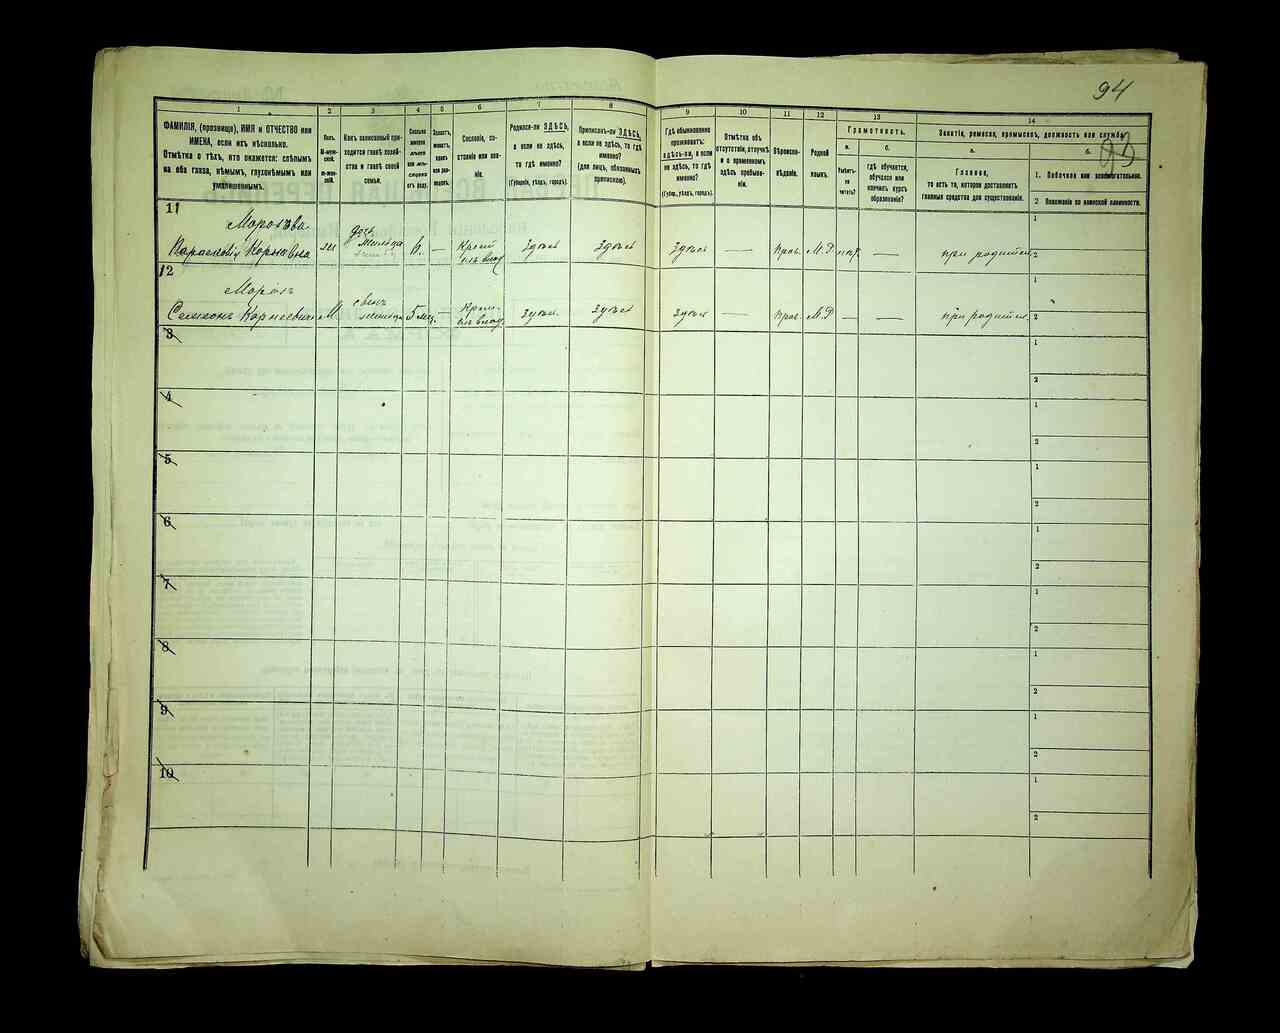 94
93
1
2
3
4
5
6
7
8
9
10
11
12
13
14
ФАМИЛІЯ, (прозвище), ИМЯ и ОТЧЕСТВО или
ИМЕНА, если ихъ нѣсколько.
Отмѣтка о тѣхъ, кто окажется: слѣпымъ
на оба глаза, нѣмымъ, глухонѣмымъ или
умалишеннымъ.
Полъ.
М-муж-
ской.
Ж-жен-
скій.
Какъ записанный при-
ходится главѣ хозяй-
ства и главѣ своей
семьи.
Сколько
минуло
лѣтъ
или мѣ-
сяцевъ
отъ роду.
Холостъ,
женатъ,
вдовъ
или раз-
веденъ.
Сословіе, со-
стояніе или зва-
ніе.
Родился-ли ЗДѢСЬ,
а если не здѣсь,
то гдѣ именно?
(Губернія, уѣздъ, городъ).
Приписанъ-ли ЗДѢСЬ,
а если не здѣсь, то гдѣ
именно?
(для лицъ, обязанныхъ
припискою).
Гдѣ обыкновенно
проживаетъ:
здѣсь-ли, а если
не здѣсь, то гдѣ
именно?
(Губер., уѣздъ, городъ).
Отмѣтка объ
отсутствіи, отлучкѣ
и о временномъ
здѣсь пребыва-
ніи.
Вѣроиспо-
вѣданіе.
Родной
языкъ.
Грамотность.
а.
б.
Умѣетъ-
ли
читать?
гдѣ обучается,
обучался или
кончилъ курсъ
образованія?
Занятіе, ремесло, промыселъ, должность или служба.
а.
б.
Главное,
то есть то, которое доставляетъ
главныя средства для существованія.
1. Побочное или вспомогательное.
2 Положеніе по воинской повинности.
11
Морозова
Параскевія Корнѣвна
дочь
6.
—
здѣсь
здѣсь
здѣсь
—
Прав.
М. Р
—
при родител.
1
2
12
Морозъ
Семеонъ Корнеевичъ
М.
сынъ
5 мц.
—
здѣсь
здѣсь
здѣсь
—
Прав.
М. Р
—
—
при родител.
1
2
3
1
2
4
1
2
5
1
2
6
1
2
7
1
2
8
1
2
9
1
2
10
1
2